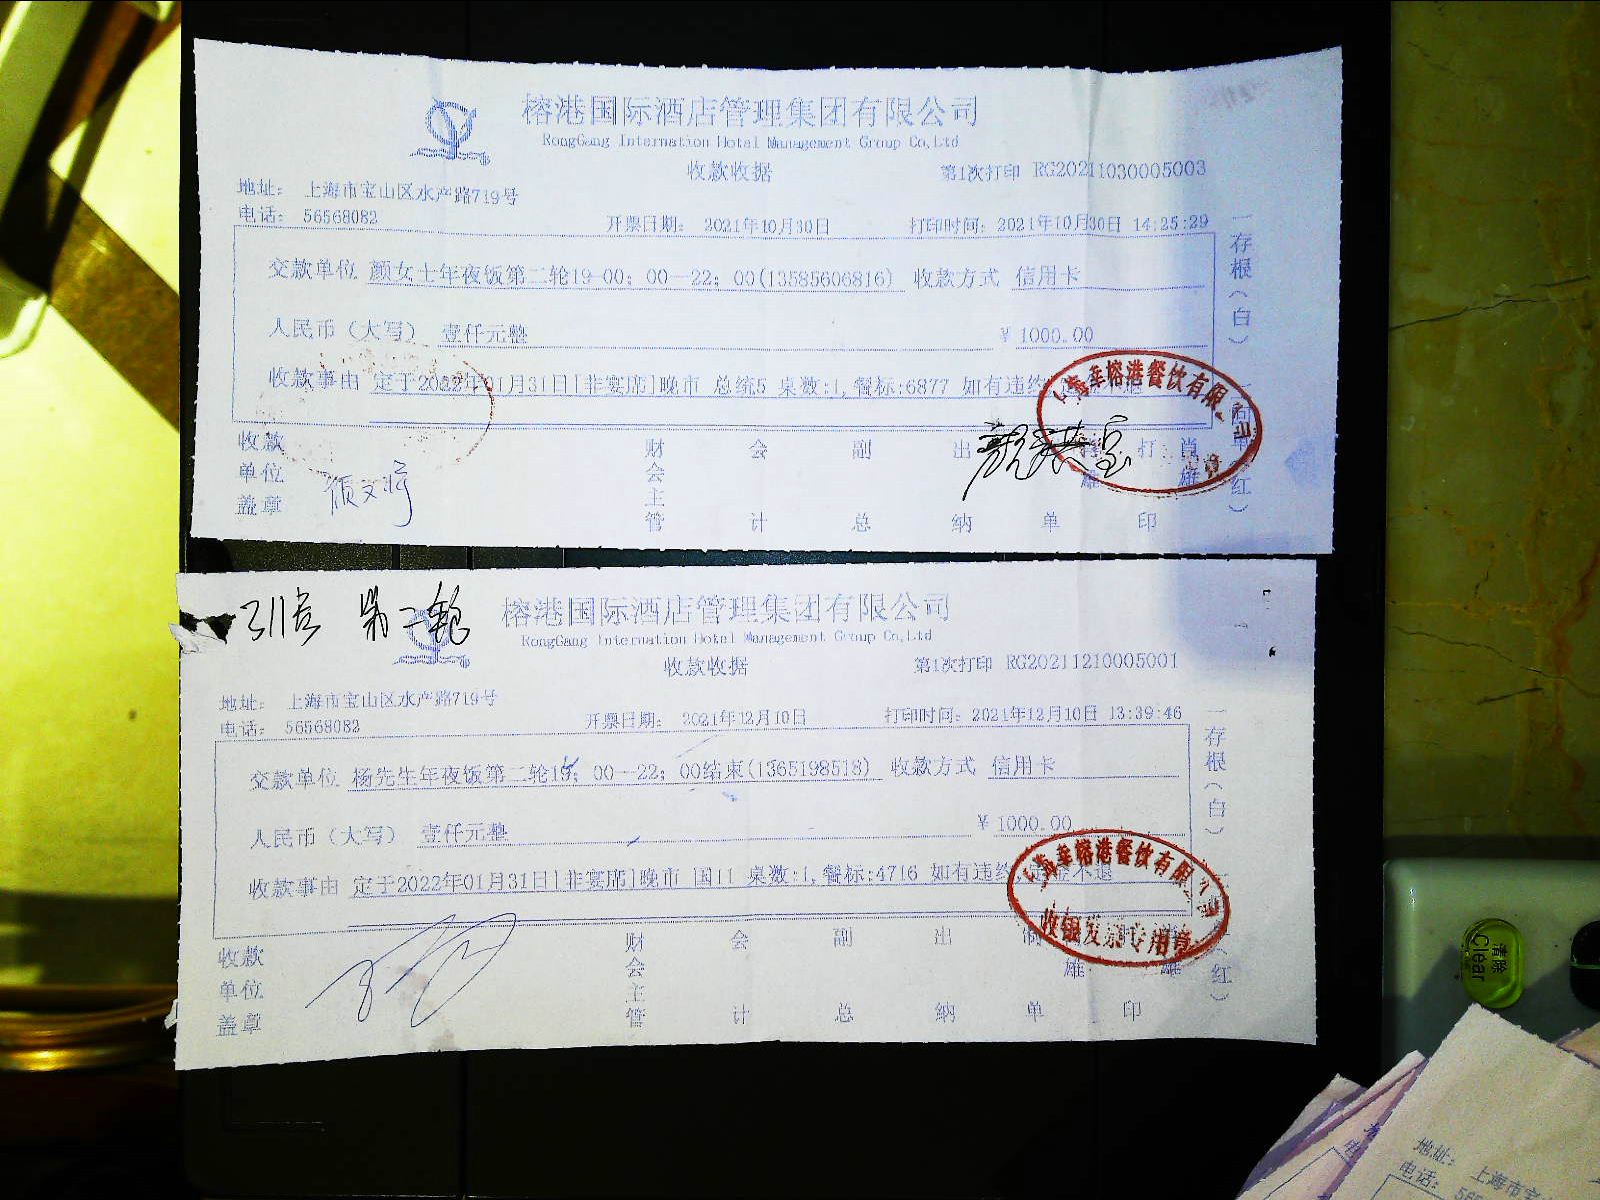 榕港国际酒店管理集团有限公司
RongGang Internation Hotel Management Group Co,Ltd
收款收据
第1次打印 RG20211030005003
地址: 上海市宝山区水产路719号
电话: 56568082
开票日期: 2021年10月30日
打印时间: 2021年10月30日 14:25:29
交款单位 颜女士年夜饭第二轮19-00; 00-22; 00(13585606816) 收款方式 信用卡
人民币(大写) 壹仟元整 ¥ 1000.00
收款事由 定于2022年01月31日[非宴席]晚市 总统5 桌数:1,餐标:6877 如有违约
上海幸榕港餐饮有限公司
存根(白)
(红)
收款单位盖章
财会主管
会计
副总
出纳
打印
榕港国际酒店管理集团有限公司
RongGang Internation Hotel Management Group Co,Ltd
第二轮
收款收据
第1次打印 RG20211210005001
地址: 上海市宝山区水产路719号
电话: 56568082
开票日期: 2021年12月10日
打印时间: 2021年12月10日 13:39:46
交款单位 杨先生年夜饭第二轮19; 00-22; 00结束(1365198518) 收款方式 信用卡
人民币(大写) 壹仟元整 ¥ 1000.00
收款事由 定于2022年01月31日[非宴席]晚市 国11 桌数:1,餐标:4716 如有违约,定金不退
上海幸榕港餐饮有限公司
收银发票专用章
存根(白)
(红)
收款单位盖章
财会主管
会计
副总
出纳
制单
印
清除
Clear
地址:
上海市宝
电话: